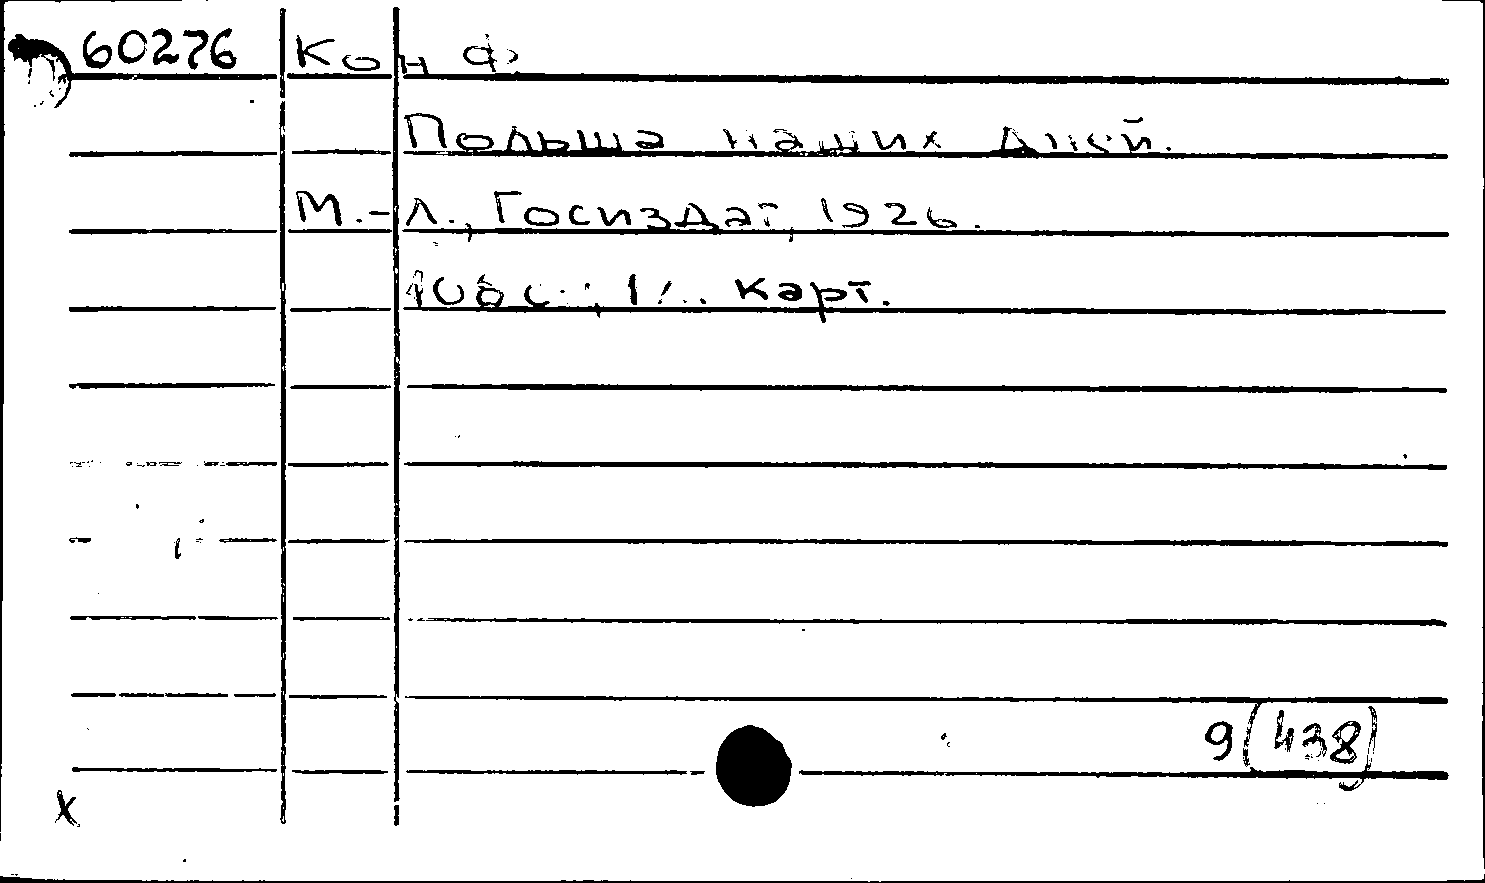 60276 Кон Ф.
Польша наших дней.
М.-Л., Госиздат, 1926.
108 с., 1 л. карт.
9(438)
x